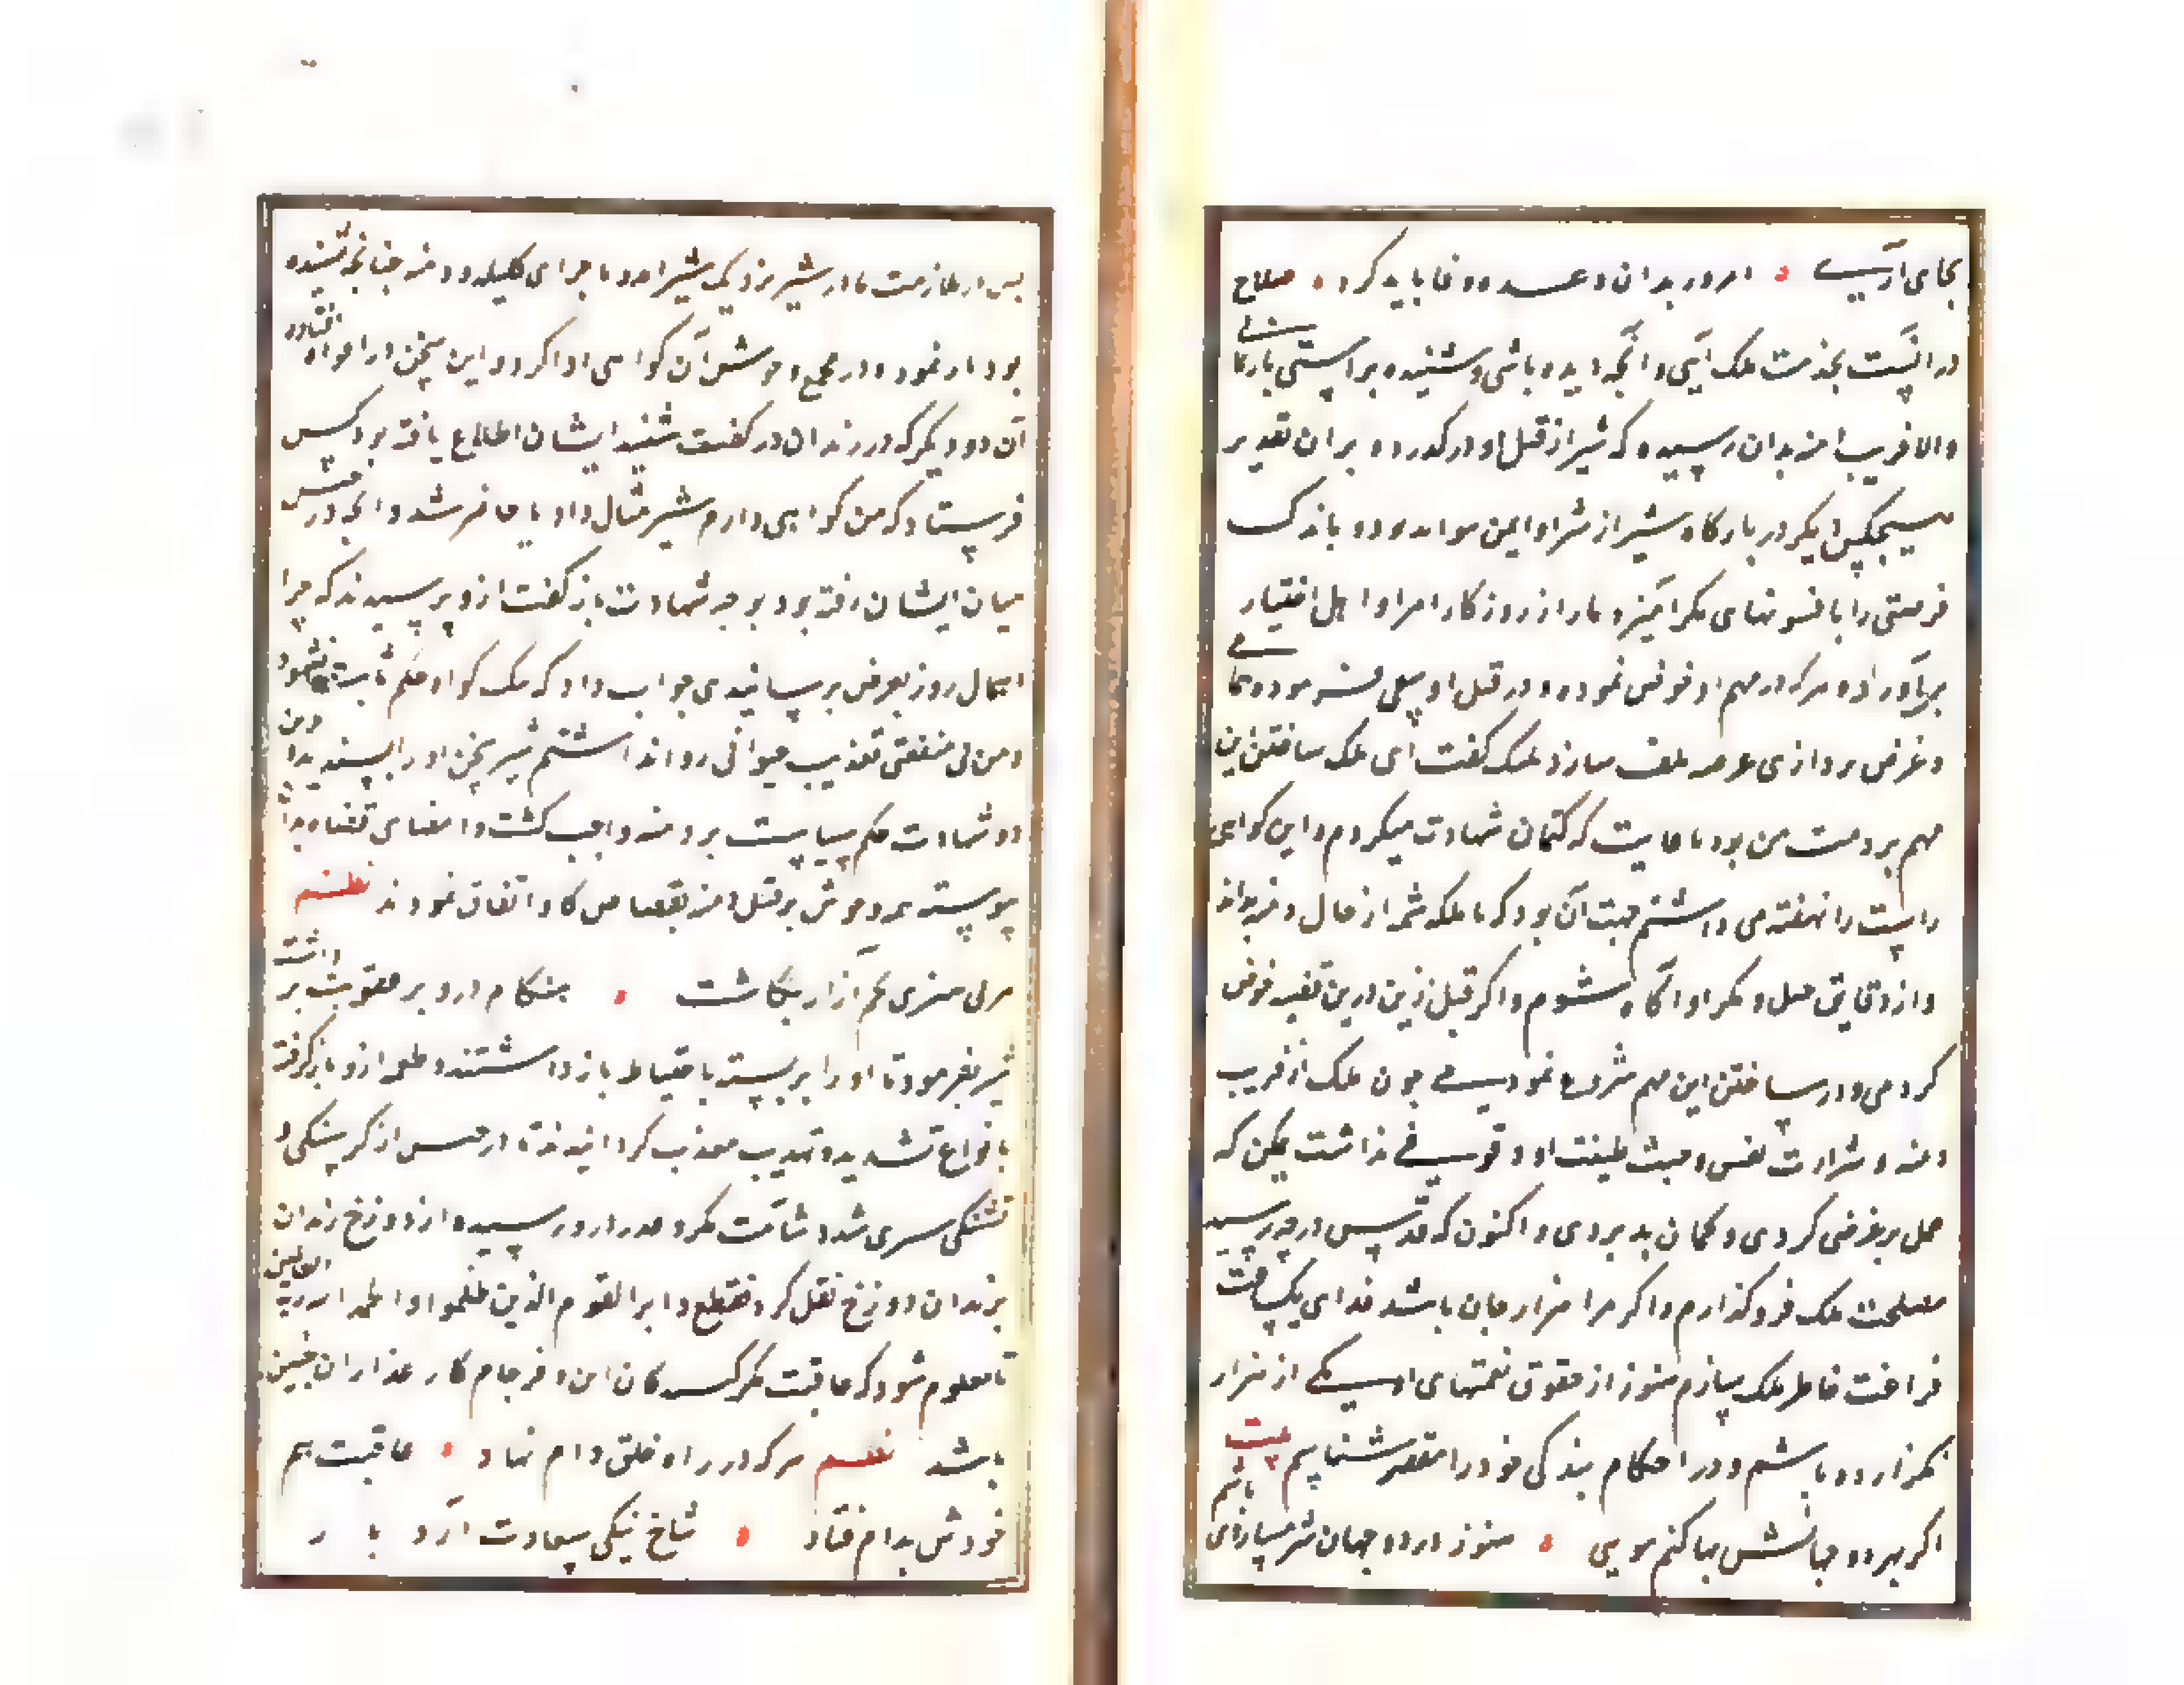 بجای آری امروز بدان وعده وفا باید کرد صلاح
در انست بخدمت ملک آیی و آنچه دیده باشی و شنیده براستی باز نمایی
والا فریب دمنه بدان رسیده که شیر از قتل او درگذرد و بران تقدیر
هیچکس دیگر در بارگاه شیر از شر او ایمن نخواهد بود و باندک
فرصتی را بافسونهای مکرآمیز دمار از روزگار امرا و اهل اختیار
برآورد و هرکه در مهم او خوض نموده و در قتل او سعی
و غرض پردازی عرصه تلف سازد پلنگ گفت ای ملک ساختن این
مهم بر ذمت من بود تا غایت که کتمان شهادت میکردم و این گواهی
راست را نهفته می داشتم جهت آن بود که تا ملک شمه از حال دمنه بداند
و از دقایق حیل و مکر او آگاه شوم و اگر قبل ازین درین قضیه خوض
کردمی و در ساختن این مهم شروع نمودمی چون ملک از فریب
دمنه و شرارت نفس و خبث طینت او وقوفی نداشت یمکن که
حمل بر غرضی کردی و گمان بد بردی و اکنون که قدسیس درجه رسید
مصلحت ملک فرو گذارم و اگر مرا هزار جان باشد فدای یک ساعت
فراغت خاطر ملک سازم هنوز از حقوق نعمتهای او یکی از هزار
نگزارده باشم و در احکام بندگی خود را مقصر شناسم بیت
اگر بهر دو جهانش بها کنم مویی هنوز در دو جهان شرمسار باشم
پس از ملازمت مادر شیر نزدیک شیر آمد و ماجرای کلیله و دمنه چنانچه شنیده
بود باز نمود و در مجمع وحوش آن گواهی ادا کرد و این سخن در افواه افتاده
آن دد دیگر که در زندان در گفت شنید ایشان اطلاع یافته بود کس
فرستاد که من گواهی دارم شیر مثال داد تا حاضر شد و آنچه در حبس
میان ایشان رفته بود بر وجه شهادت باز گفت ازو پرسیدند که چرا
همان روز بعرض نرسانیدی جواب داد که بیک گواه حکم ثابت نشود
و من بی منفعتی تعذیب حیوانی روا نداشتم شیر سخن او را پسندید
دو شهادت حکم سیاست بر دمنه واجب گشت و امضای قضاه بدان
پیوسته همه وحوش بر قتل دمنه بقصاص گاو اتفاق نمودند نظم
هر بی هنری تخم آزار بکاشت هنگام درو بر عقوبت بر داشت
شیر بفرمود تا او را بر بسته باحتیاط باز داشتند و طعمه ازو باز گرفته
بانواع تشدید و تهدید معذب گردانیدند تا در حبس از گرسنگی و
تشنگی سپری شد و شامت مکر و غدر او در رسید و از دوزخ زندان
بزندان دوزخ نقل کرد فقطع دابر القوم الذین ظلموا والحمد لله رب العالمین
تا معلوم شود که عاقبت مکرکنندگان این و فرجام کار غداران چنین
باشد نظم هرکه در راه خلق دام نهاد عاقبت هم
خودش بدام فتاد شاخ نیکی سعادت آرد بار